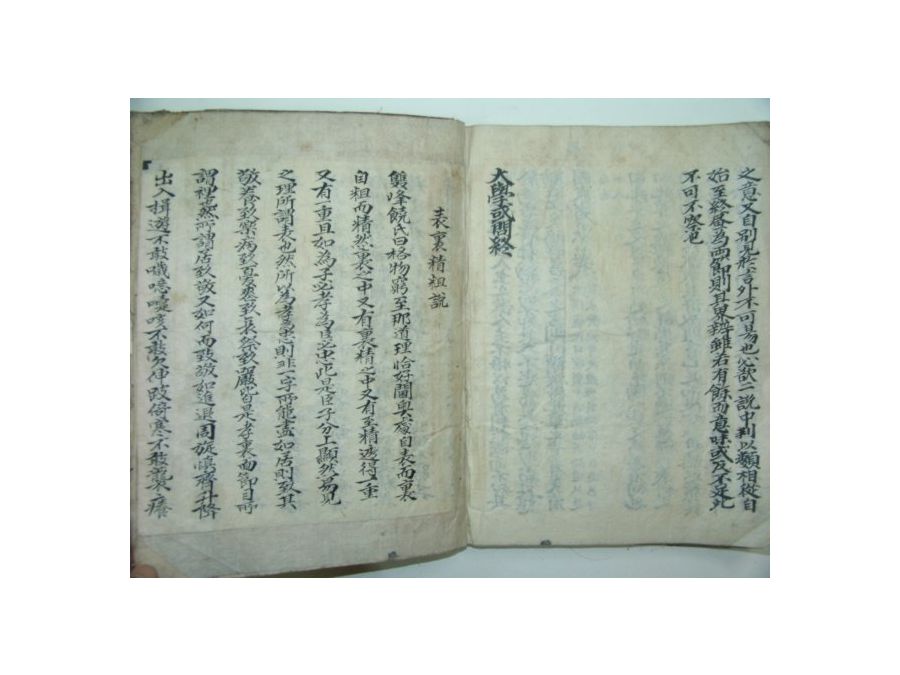 之意又自別見於言外不可易也必欲二說中判以類相從自
始至終盡為兩節則其界辨雖若有餘而意味或反不足此
不可不察也
大學或問終
表裏精粗說
雙峰饒氏曰格物窮至那道理恰好閫奧處自表而裏
自粗而精然裏之中又有裏精之中又有至精透得一重
又有一重且如為子必孝為臣必忠此是臣子分上顯然易見
之理所謂表也然所以為孝為忠則非一字所能盡如居則致其
敬養致樂病致憂喪致哀祭致嚴皆是孝裏面節目所
謂裡也然所謂居致敬又如何而致敬如進退周旋慎齊升降
出入揖遜不敢噦噫嚏咳不敢欠伸跛倚寒不敢襲癢